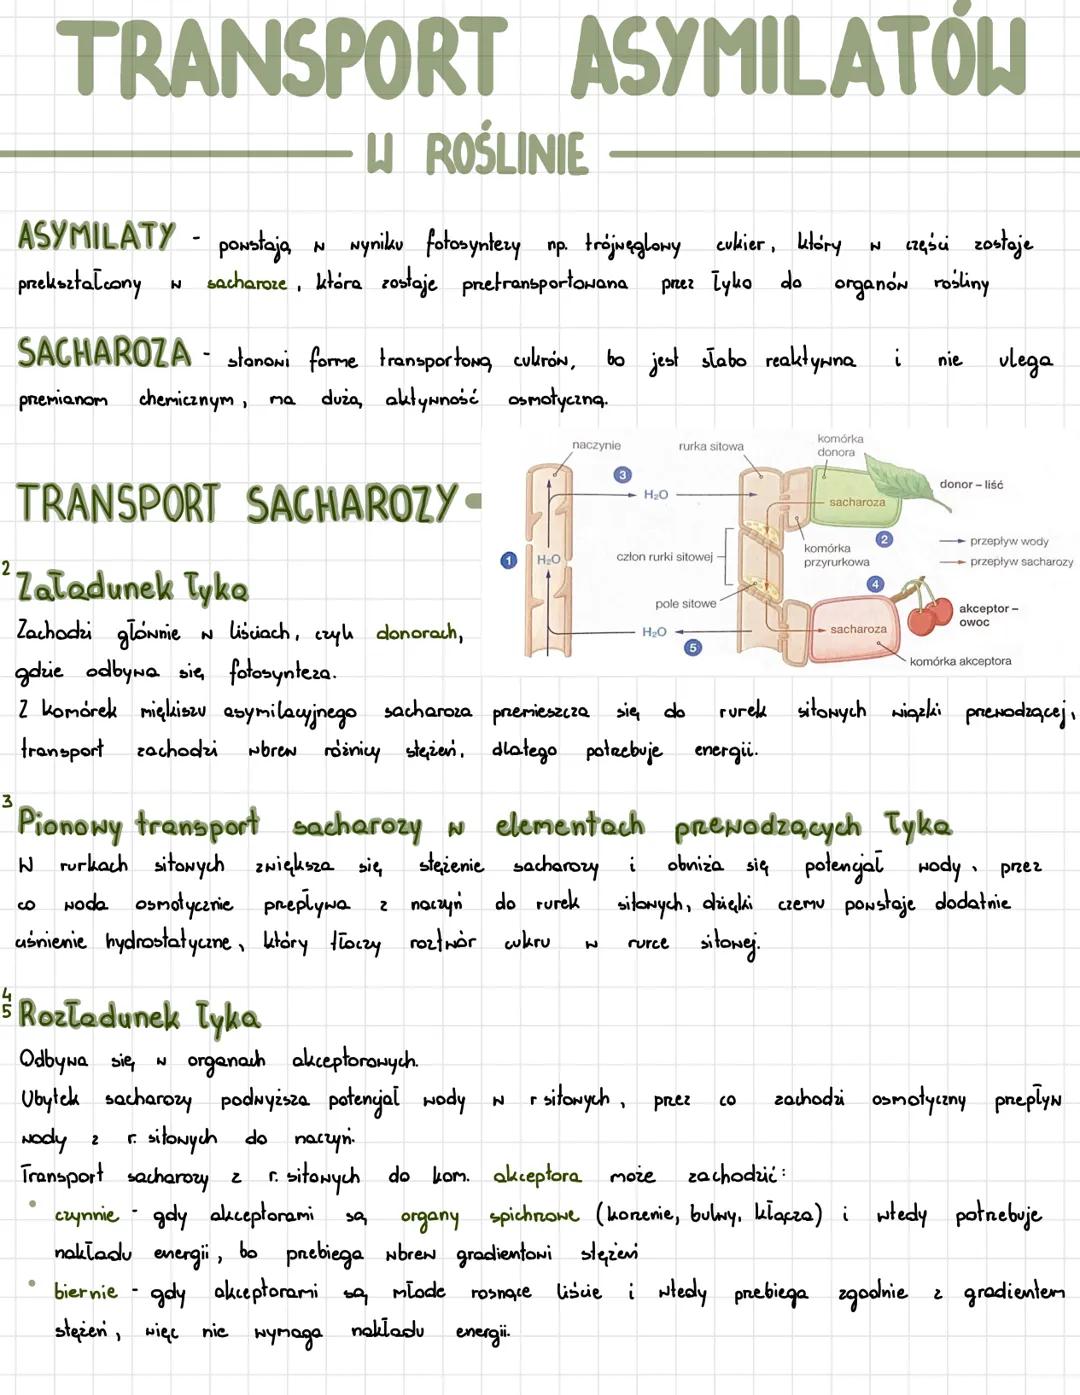 TRANSPORT ASYMILATÓW
W ROŚLINIE
ASYMILATY - powstają w wyniku fotosyntezy np. trójwęglowy cukier, który w części zostaje
przekształcony w sacharozę, która zostaje przetransportowana przez łyko do organów rośliny
SACHAROZA - stanowi formę transportową cukrów, bo jest słabo reaktywna i nie ulega
przemianom chemicznym, ma dużą aktywność osmotyczną.
TRANSPORT SACHAROZY
naczynie
rurka sitowa
komórka
donora
3
H₂O
sacharoza
donor – liść
1
H₂O
człon rurki sitowej
komórka
przyrurkowa
2
przepływ wody
przepływ sacharozy
pole sitowe
4
akceptor –
owoc
H₂O
5
sacharoza
komórka akceptora
2 Załadunek łyka
Zachodzi głównie w liściach, czyli donorach,
gdzie odbywa się fotosynteza.
Z komórek miękiszu asymilacyjnego sacharoza przemieszcza się do rurek sitowych wiązki przewodzącej,
transport zachodzi wbrew różnicy stężeń, dlatego potrzebuje energii.
3 Pionowy transport sacharozy w elementach przewodzących łyka
W rurkach sitowych zwiększa się stężenie sacharozy i obniża się potencjał wody, przez
co woda osmotycznie przepływa z naczyń do rurek sitowych, dzięki czemu powstaje dodatnie
ciśnienie hydrostatyczne, który tłoczy roztwór cukru w rurce sitowej.
4
5 Rozładunek łyka
Odbywa się w organach akceptorowych.
Ubytek sacharozy podwyższa potencjał wody w r sitowych, przez co zachodzi osmotyczny przepływ
wody z r. sitowych do naczyń.
Transport sacharozy z r. sitowych do kom. akceptora może zachodzić:
• czynnie - gdy akceptorami są organy spichrzowe (korzenie, bulwy, kłącza) i wtedy potrzebuje
nakładu energii, bo przebiega wbrew gradientowi stężeń
• biernie - gdy akceptorami są młode rosnące liście i wtedy przebiega zgodnie z gradientem
stężeń, więc nie wymaga nakładu energii.